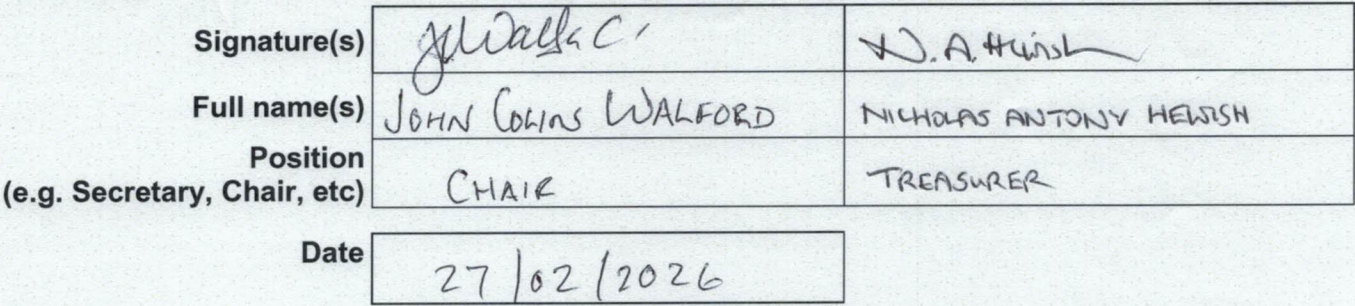 Signature(s) N. A. Hewish
Full name(s) JOHN COLINS WALFORD NICHOLAS ANTONY HEWISH
Position
(e.g. Secretary, Chair, etc) CHAIR TREASURER
Date 27/02/2026